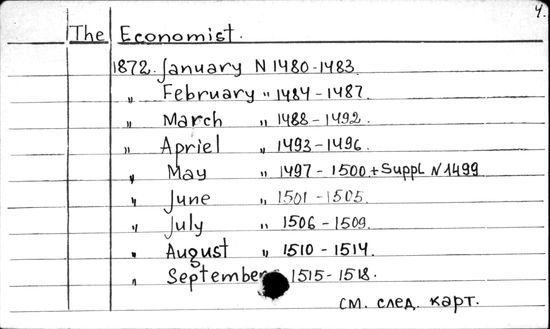 4.
The Economist.
1872. January N 1480-1483.
„ February „ 1484-1487.
„ March „ 1488-1492.
„ Apriel „ 1493-1496.
„ May „ 1497-1500 + Suppl N 1499
„ June „ 1501-1505.
„ July „ 1506-1509.
„ August „ 1510-1514.
„ September 1515-1518.
см. след. карт.